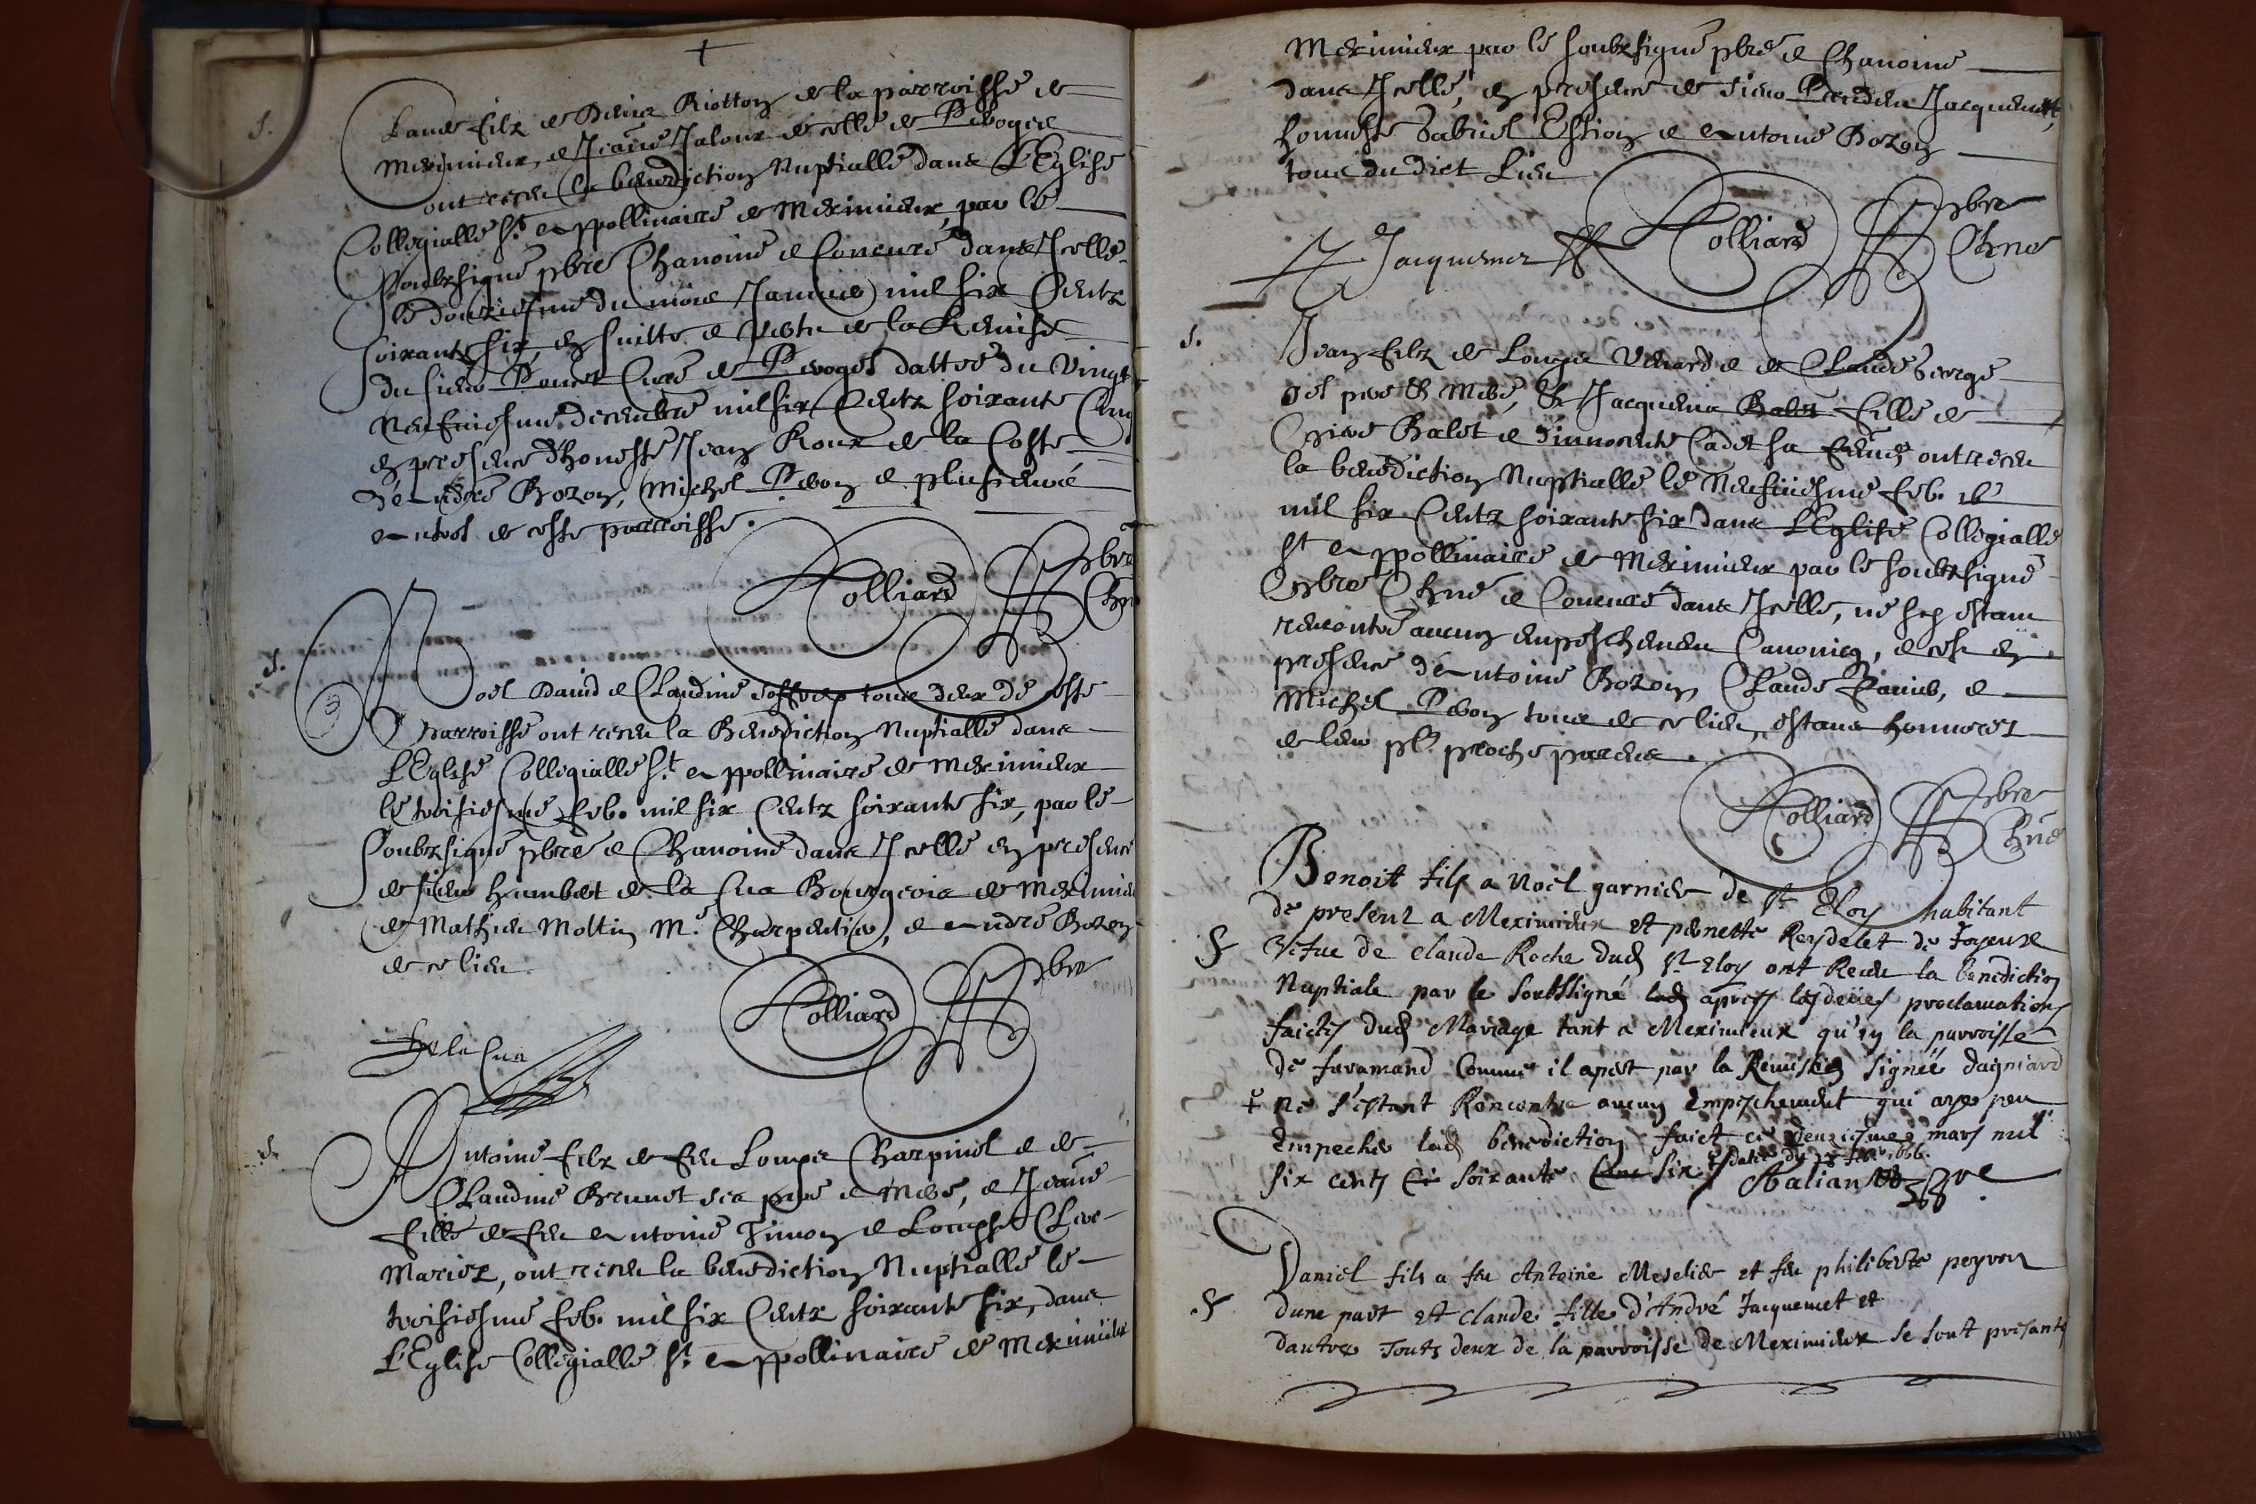 +
Claude filz de Denis Riotton de la parroisse de
Meximieux, & Jeane Jaloux de celle de Peroges
ont receu la benediction Nuptialle dans L'Eglise
Collegialle St Appollinaire de Meximieux, par le
Soubzsigné pbre Chanoine & Concuré dans Icelle
le douziesme du mois Janvier mil six Centz
soixante six, en suitte & veste de la Remise
du sieur Curé de Peroges dattée du Vingt
Neufviesme decembre mil six Centz soixante Cinq
en presence d'honneste Jean Roux de la Coste
d'André Bozon, Michel Peron & plusieurs
autres de ceste parroisse.
Rolliard pbre
Chne
Noel David & Claudine tous deux de ceste
Parroisse ont receu la Benediction Nuptialle dans
L'Eglise Collegialle St Appollinaire de Meximieux
le troisiesme feb. mil six Centz soixante six, par le
Soubzsigné pbre & Chanoine dans Icelle en presence
de sieur Humbert de la Cua Bourgeois de Meximieux
& Mathieu Moltin Me Charpentier, & André Bozon
de ce lieu.
Rolliard pbre
De la Cua
Antoine filz de feu Loupce Charpinel & de
Claudine Brunet ses pere & mere, & Jeane
fille de feu Antoine Timon & Louyse Clere
Mariez, ont receu la benediction Nuptialle le
troisiesme feb. mil six Centz soixante six, dans
L'Eglise Collegialle St Appollinaire de Meximieux
Meximieux par le soubzsigné pbre & Chanoine
dans Icelle, en presence de sieur Jacquemet,
honneste Gabriel Estion & Antoine Bozon
tous du dict Lieu
Jacquemet Rolliard pbre
Chne
Jean filz de Loupce & de Claude George
ses pere & Mere, & Jacquema Balet fille de
Pierre Balet & d'innocente Cadet sa feme ont receu
la benediction Nuptialle le Neufviesme feb.
mil six Centz soixante six dans L'Eglise Collegialle
St Appollinaire de Meximieux par le soubzsigné
pbre Chne & Concuré dans Icelle, ne s'en estant
rencontré aucun empeschement Canonicq, & ce en
presence d'Antoine Bozon, Claude & 
Michel Peron tous de ce lieu, estans honnorez
de leur pls proche parens.
Rolliard pbre
Chne
Benoit fils a Noel garnier de St Eloy habitant
de present a Meximieux et pernette Reydelet de Joyeux
Vefue de claude Roche dud St Eloy ont Receu la benediction
Nuptiale par le soubsigné apres les deües proclamations
faictes dud Mariage tant a Meximieux qu'en la parroisse
de faramand Comme il apert par la Remission signée dagniard
+ Ne s'estant Rencontré aucun empeschement qui aye peu
Empecher lad benediction faict ce deuziesme mars mil
six cents soixante six
Daniel fils a feu Antoine Meselier et feu philiberte peyron
dune part et claude fille d'André Jacquemet et
dautre Touts deux de la parroisse de Meximieux se sont presants